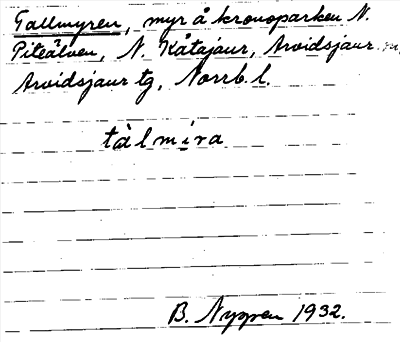 Tallmyren, myr å kronoparken N.
Piteälven, N. Kåtajaur, Arvidsjaur
Arvidsjaur tg, Norrb. l.
tàlmira
B. Nyppen 1932.